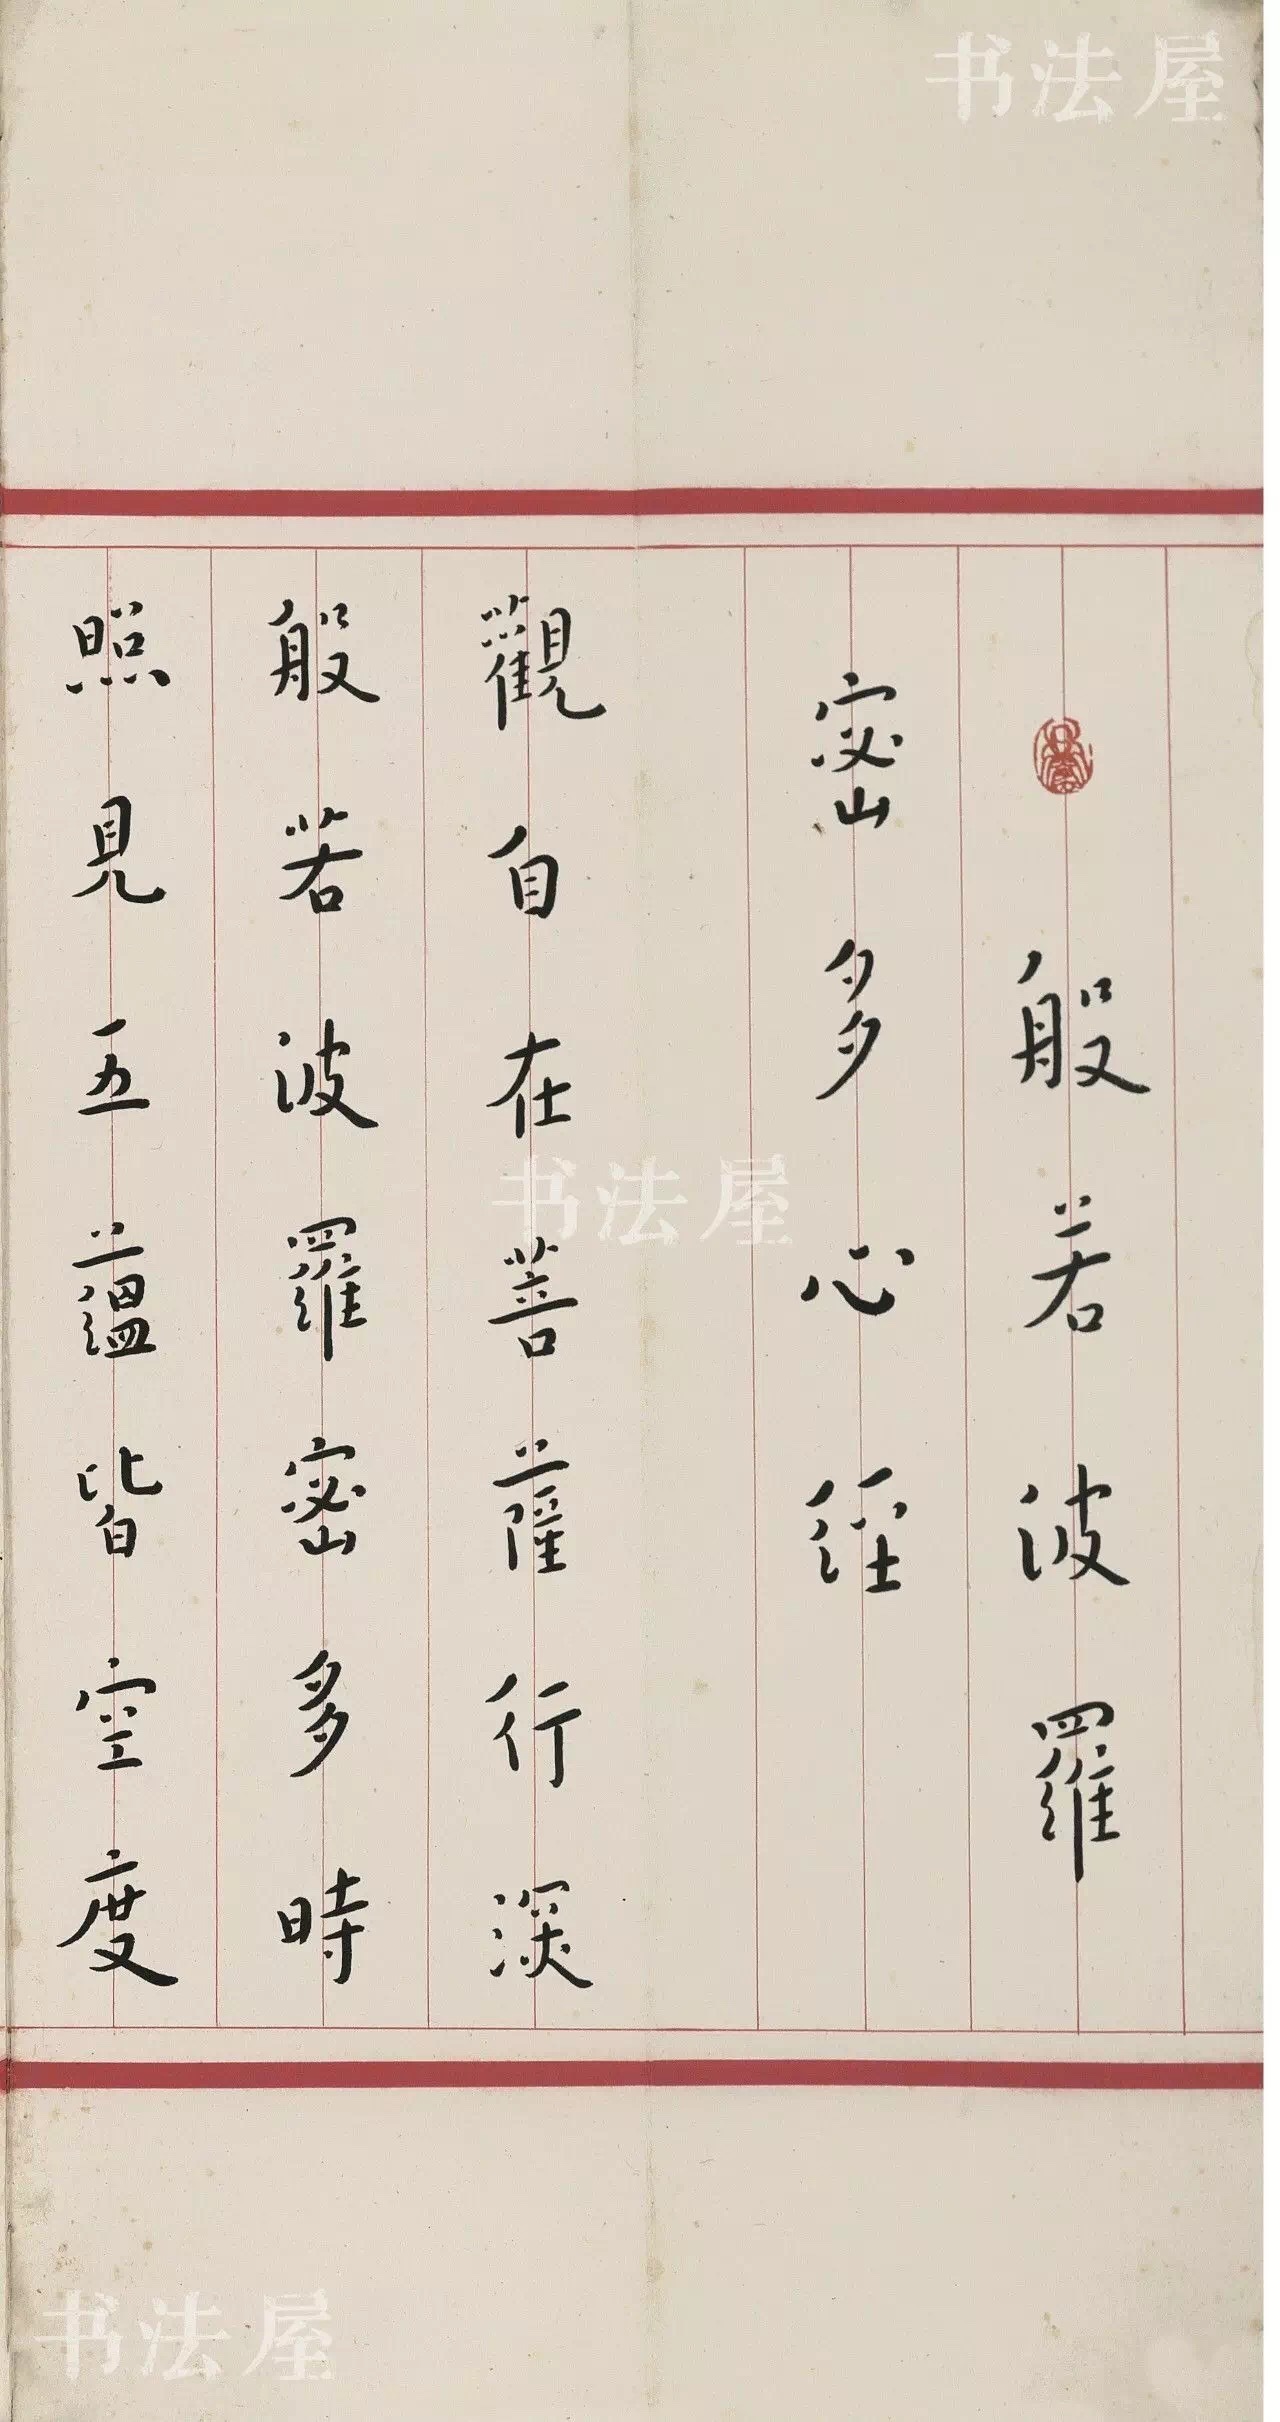 般若波羅
密多心經
觀自在菩薩行深
般若波羅密多時
照見五蘊皆空度
书法屋
书法屋
书法屋